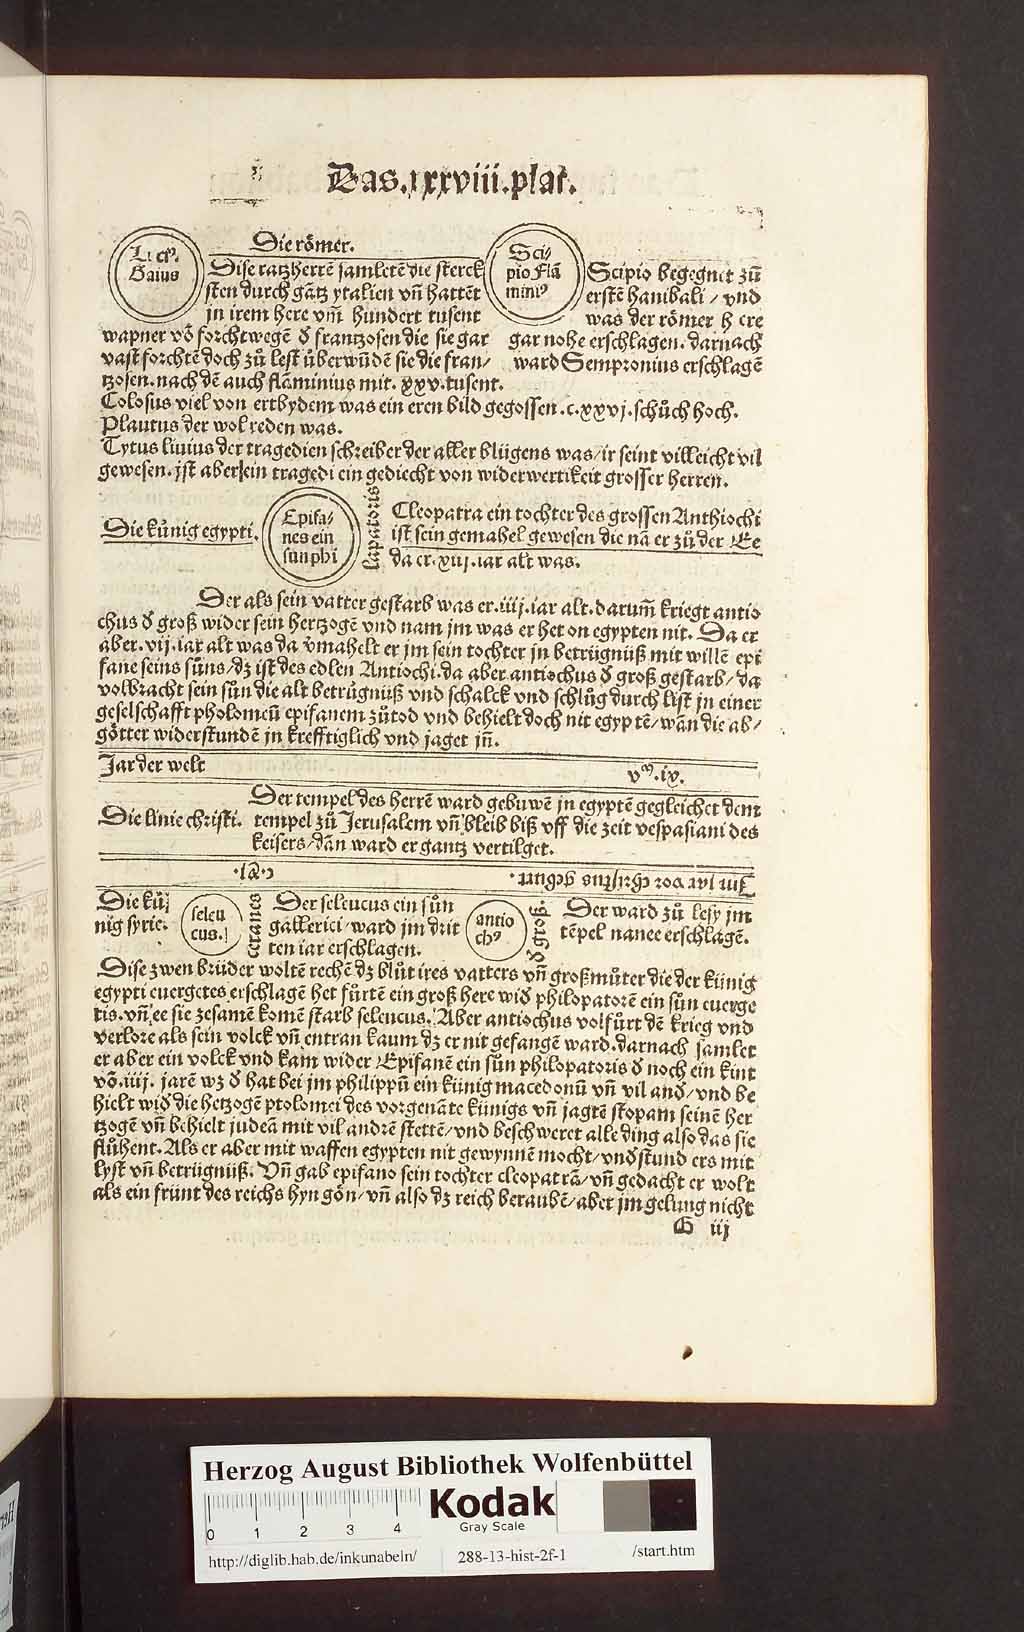 Das .lxxviii. plat.
Die rőmer.
Gaius
Dise ratzherrē samletē die sterck
sten durch gātz ytalien vñ hattēt
in irem here vm̄ hundert tusent
wapner vō forchtwegē d̄ frantzosen die sie gar
vast forchtē doch zů lest überwūdē sie die fran/
tzosen. nach dē auch flāminius mit. xxv. tusent.
Sci/
pio Flā
miniꝰ
Scipio begegnet zů
erstē hanibali / vnd
was der rőmer here
gar nohe erschlagen. darnach
ward Sempronius erschlagē
Colosus viel von ertbydem was ein eren bild gegossen .c.xxvj. schůch hoch.
Plautus der wol reden was.
Tytus liuius der tragedien schreiber der aller blügens was / ir seint villeicht vil
gewesen. jst aber ein tragedi ein gediecht von widerwertikeit grosser herren.
Die kůnig egypti.
Epifa/
nes ein
sun phi
lapatoris
Cleopatra ein tochter des grossen Anthiochi
ist sein gemahel gewesen die nā er zů der Ee
da er. xiij. iar alt was.
Der als sein vatter gestarb was er .iiij. iar alt. darum̄ kriegt antio
chus d̄ groß wider sein hertzogē vnd nam jm was er het on egypten nit. Da er
aber .vij. iar alt was da v̄mahelt er jm sein tochter jn betrügnüß mit willē epi
fane seins sůns / dz ist des edlen Antiochi. da aber antiochus d̄ groß gestarb / da
volbracht sein sůn die alt betrügnüß vnd schalck vnd schlůg durch list jn einer
geselschafft ptholomeū epifanem zůtod vnd behielt doch nit egyptē / wān die ab/
gőtter widerstundē jn krefftiglich vnd jaget jn̄.
Jar der welt
vᵐ.ix.
Die linie christi.
Der tempel des herrē ward gebuwē jn egyptē gegleichet dem
tempel zů Jerusalem vñ bleib biß vff die zeit vespasiani des
keisers / dān ward er gantz vertilget.
Jm iar vor christus geburt.
Die kůj
nig syrie.
seleu
cus.
ceranes
Der seleucus ein sůn
gallerici / ward jm drit
ten iar erschlagen.
antio
chꝰ
d̄ groß.
Der ward zů lesy jm
tēpel nanee erschlagē.
Dise zwen brüder woltē rechē dz blůt ires vatters vñ großmůter die der künig
egypti euergetes erschlagē het fůrtē ein groß here wid̄ philopatorē ein sůn euerge
tis. vñ ee sie zesamē komē starb seleucus. Aber antiochus volfůrt dē krieg vnd
verlore als sein volck vñ entran kaum dz er nit gefangē ward. darnach samlet
er aber ein volck vnd kam wider Epifanē ein sůn philopatoris d̄ noch ein kint
vō .iiij. jarē wz d̄ hat bei jm philippū ein künig macedonū vñ vil and̄ / vnd be
hielt wid̄ die hetzogē ptolomei des vorgenāte künigs vñ jagtē stopam seinē her
tzogē vñ behielt judeā mit vil andrē stettē / vnd beschweret alle ding also das sie
flůhent. Als er aber mit waffen egypten nit gewynnē mocht / vnd̄stund ers mit
lyst vñ betrügnüß. Vñ gab epifano sein tochter cleopatrā / vñ gedacht er wolt
als ein frünt des reichs hyn gőn / vñ also dz reich beraubē / aber jm gelung nicht
G iij
Herzog August Bibliothek Wolfenbüttel
0 1 2 3 4
Kodak
Gray Scale
http://diglib.hab.de/inkunabeln/
288-13-hist-2f-1
/start.htm